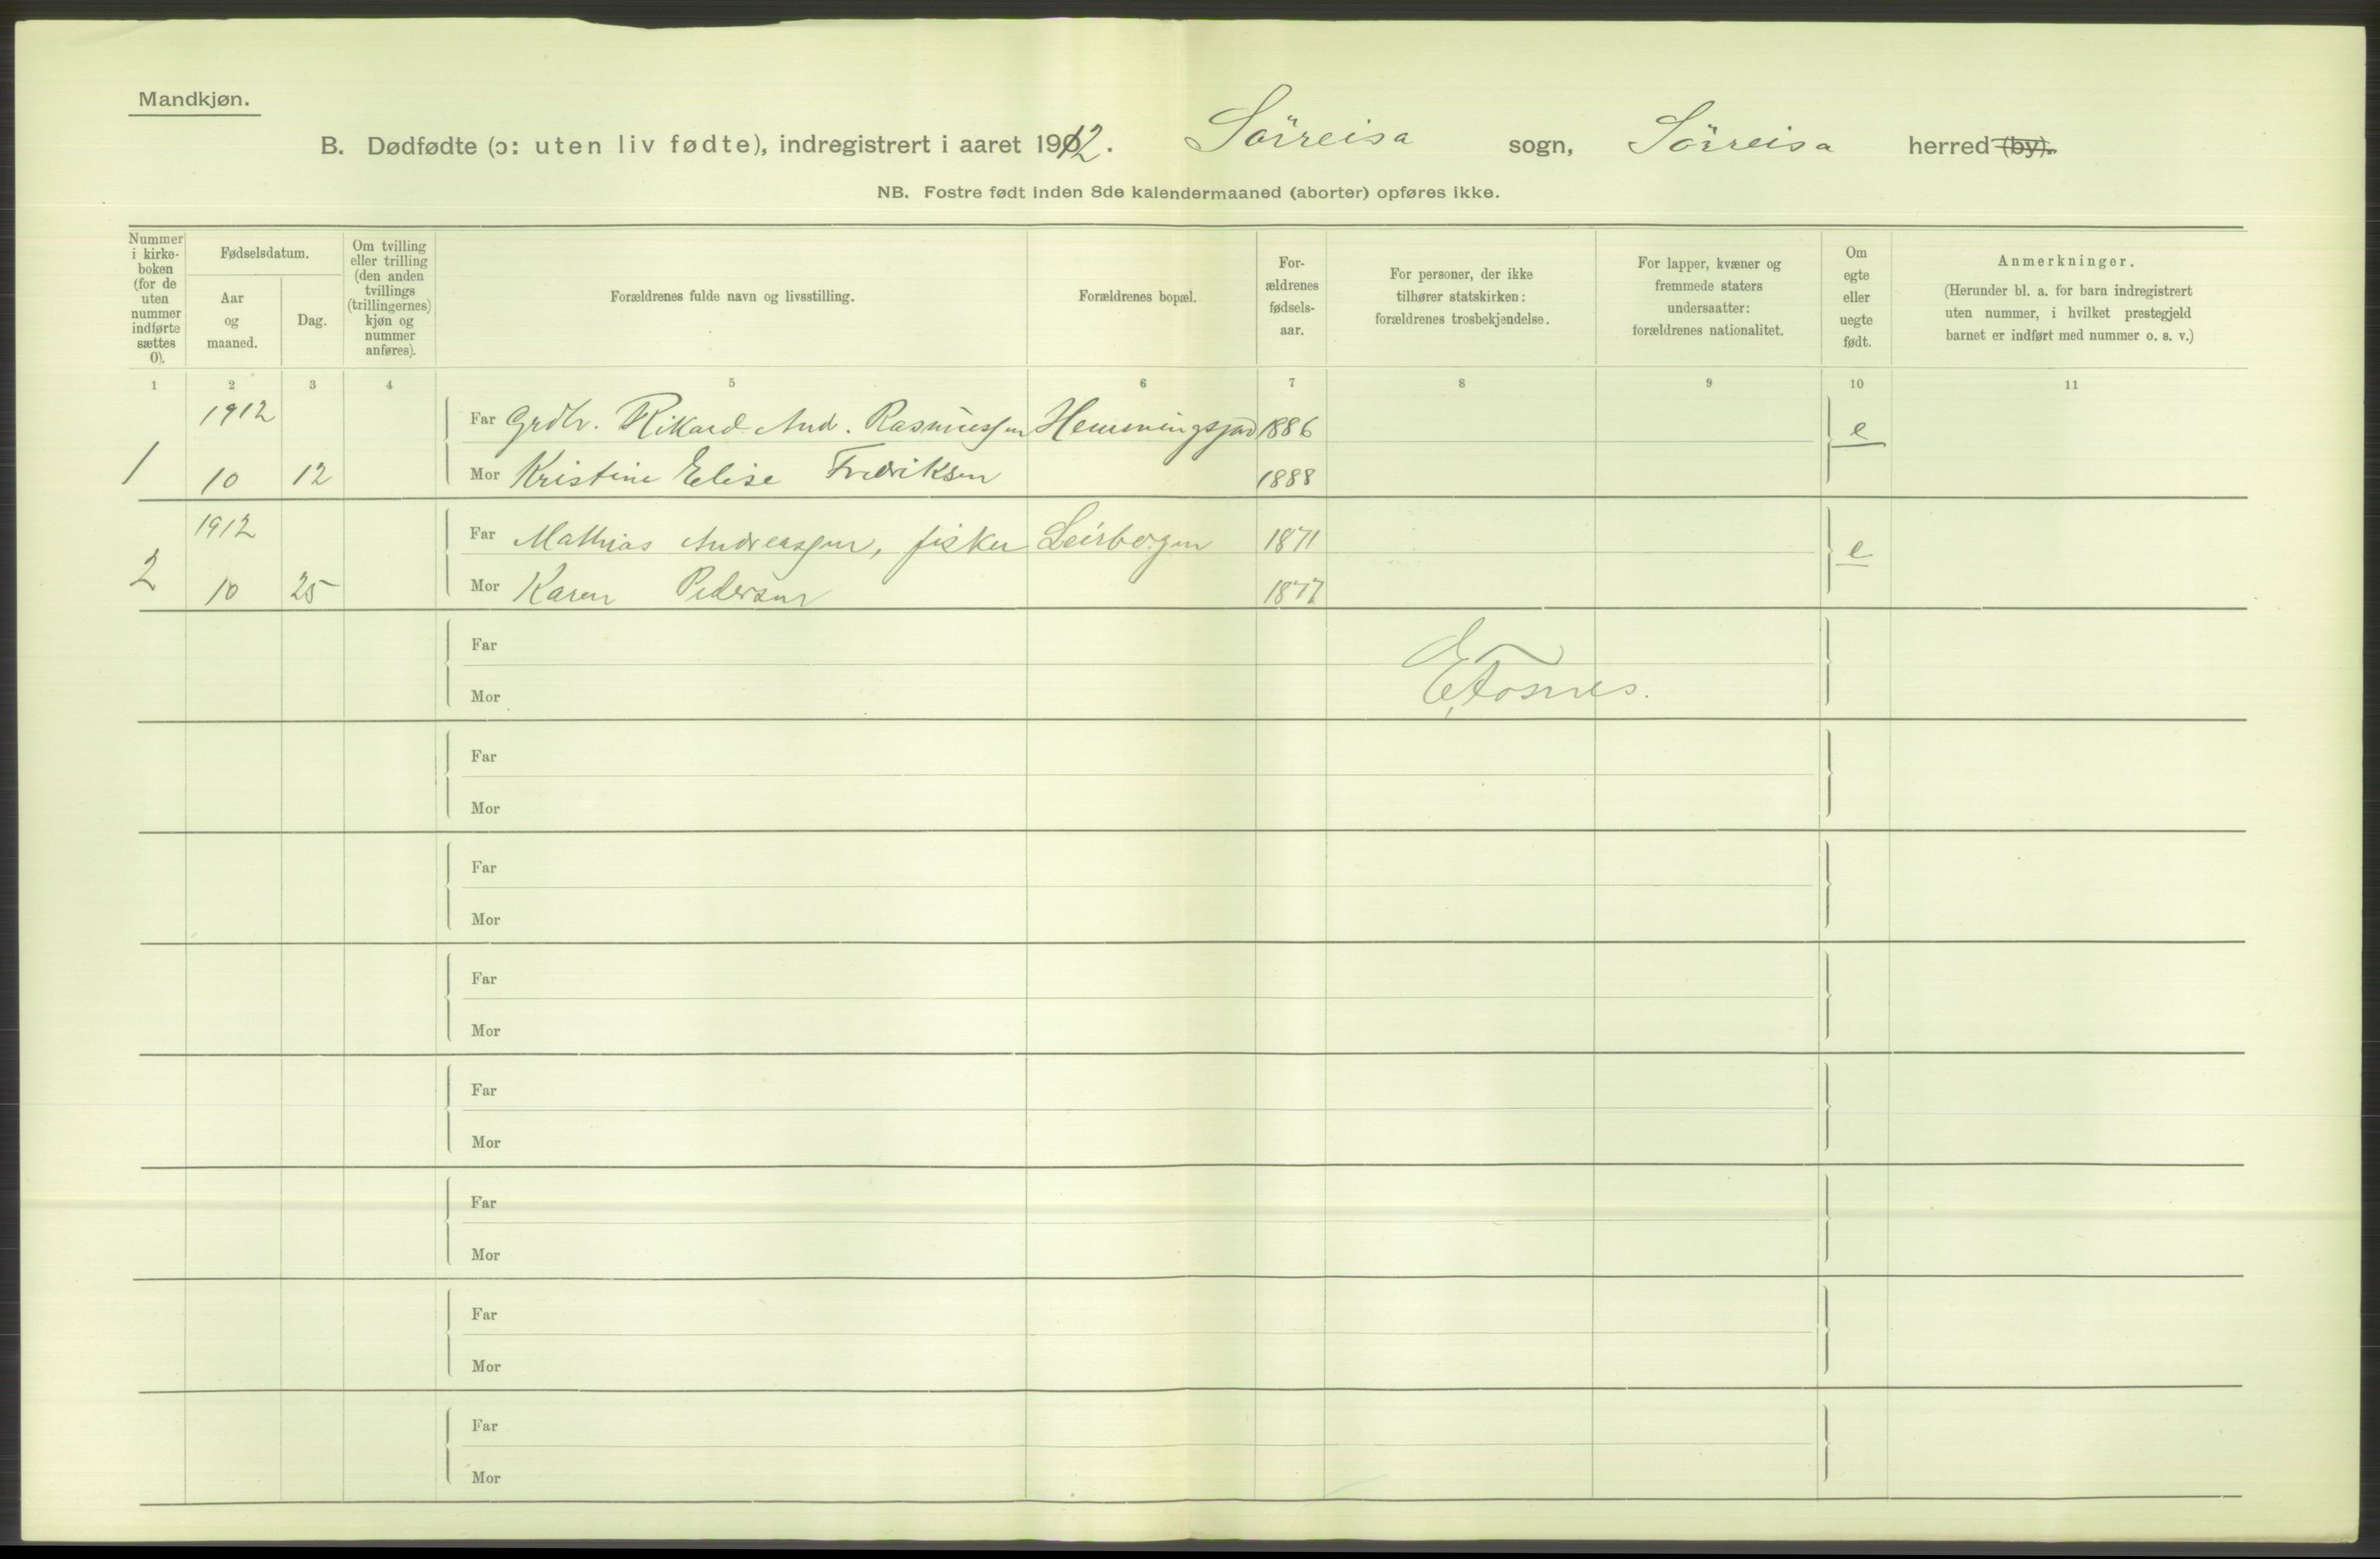 Mandkjøn.
B. Dødfødte (ɔ: uten liv fødte), indregistrert i aaret 1912. Sörreisa sogn, Sörreisa herred (by).
NB. Fostre født inden 8de kalendermaaned (aborter) opføres ikke.
Nummer i kirke-boken (for de uten nummer indførte sættes 0).
Fødselsdatum.
Aar og maaned.
Dag.
Om tvilling eller trilling (den anden tvillings (trillingernes) kjøn og nummer anføres).
Forældrenes fulde navn og livsstilling.
Forældrenes bopæl.
For-ældrenes fødsels-aar.
For personer, der ikke tilhører statskirken: forældrenes trosbekjendelse.
For lapper, kvæner og fremmede staters undersaatter: forældrenes nationalitet.
Om egte eller uegte født.
Anmerkninger.
(Herunder bl. a. for barn indregistrert uten nummer, i hvilket prestegjeld barnet er indført med nummer o. s. v.)
1 2 3 4 5 6 7 8 9 10 11
1912 Far Grdbr. Rikard And. Rasmussen 1886 e
1 10 12 Mor Kristine Elise Fredriksen 1888
1912 Far Mathias Andreassen, fisker 1871 e
2 10 25 Mor Karen Pedersen 1877
Far
Mor
Far
Mor
Far
Mor
Far
Mor
Far
Mor
Far
Mor
Far
Mor
Far
Mor